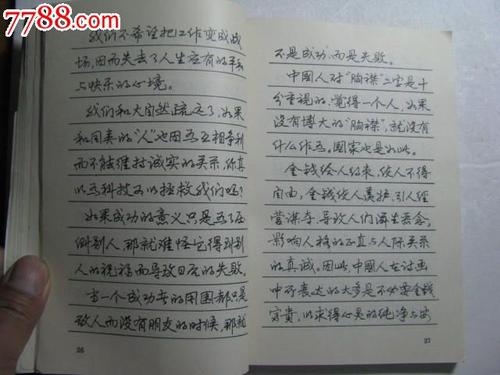 7788.com
中国收藏热线
我们不希望把工作变成战
场,因而失去了人生应有的平和
与快乐的心境。
我们和大自然疏远了,如果
和同类的“人”也因为互相争利
而不能维持诚实的关系,你真
以为科技可以拯救我们吗?
如果成功的意义只是为了压
倒别人,那就难怪得到别
人的祝福而导致日后的失败。
当一个成功者的周围都只是
敌人而没有朋友的时候,那就
26
不是成功,而是失败。
中國人对“胸襟”二字是十
分重视的,觉得一个人,如果
没有博大的“胸襟”,就没有
什么作为。國家也是如此。
金钱给人约束,使人不得
自由,金钱使人
影响人格的正直与人际关系
的真诚。因此,中國人在
中所表达的大多是不必要金钱
富贵,以求得心灵的纯净与安
27